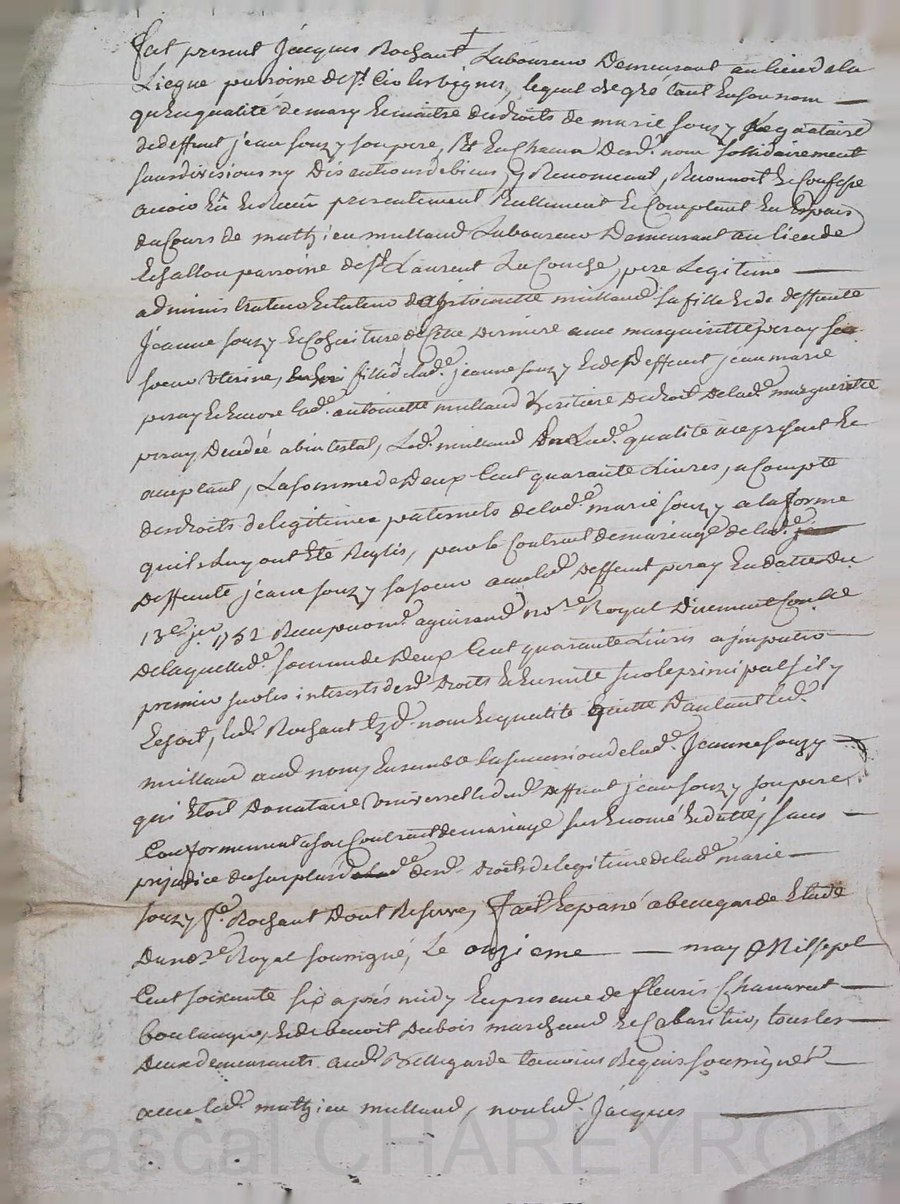 fut present Jacques Rochant Laboureur Demeurant au lieu de la
Liegue parroisse de st. Cir les vignes, lequel de gré tant en son nom
qu'en qualité de mary et maitre des droits de marie souzy Legataire
de deffunt jean souzy son pere, Et En Chacun desd. nom sollidairement
sans division ny discution de biens y Renoncant, Reconnoit et confesse
avoir Eu et Receu presentement Reellement et Comptant En Espece
du Cours de mathieu mulland Laboureur Demeurant au lieu de
Echallon parroisse de st. Laurent La Conche, pere Legitime
administrateur et tuteur de Antoinette mulland sa fille et de deffunte
Jeanne souzy et cohéritiere de cette Derniere avec margueritte piray sa
soeur uterine, fille de lad. jeanne souzy et de deffunt jean marie
piray et encore lad. antoinette mulland heritiere de droit de lad. margueritte
piray decedée abintestat, Led. mulland esd. qualité a ce present et
acceptant, La somme de Deux Cent quarante Livres, a Compte
des droits de legitime paternels de lad. marie souzy a la forme
qu'ils luy ont Eté Reglés, par le Contrat de mariage de lad.
Deffunte jeanne souzy sa soeur avec led. deffunt piray En datte du
13e. jer 1752 Receu par me. aguiraud nore. Royal Duement Controllé
De laquelle somme de Deux Cent quarante Livres a imputer
premier sur les interests desd. Droits et Ensuitte sur le principal s'il y
Echoit, led. Rochant esd. nom et qualité quitte D'autant led.
mulland aud. nom, Ensemble la succession de lad. Jeanne souzy
qui Etoit Donataire Universelle dud. deffunt jean souzy son pere,
Conformement a son Contract de mariage sus Enoncé et datté, sans
prejudice du surplus desd. Droits de legitime de lad. marie
souzy fe. Rochant Dont Reserve, fait et passé a bellegarde Etude
Du nore. Royal soussigné, Le onzieme may Mil sept
Cent soixante six après midy En presence de fleuris Chanavat
boulanger, et de benoit Dubois marchand et Cabaretier, tous les
Deux demeurants aud. Bellegarde temoins Requis soussignés
avec led. mathieu mulland, non led. Jacques
Pascal CHAREYRON